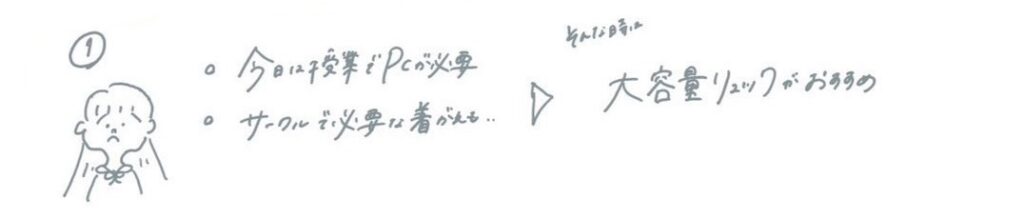 ①
今日は授業でPCが必要
サークルで必要な着がえも..
そんな時に
大容量リュックがおすすめ